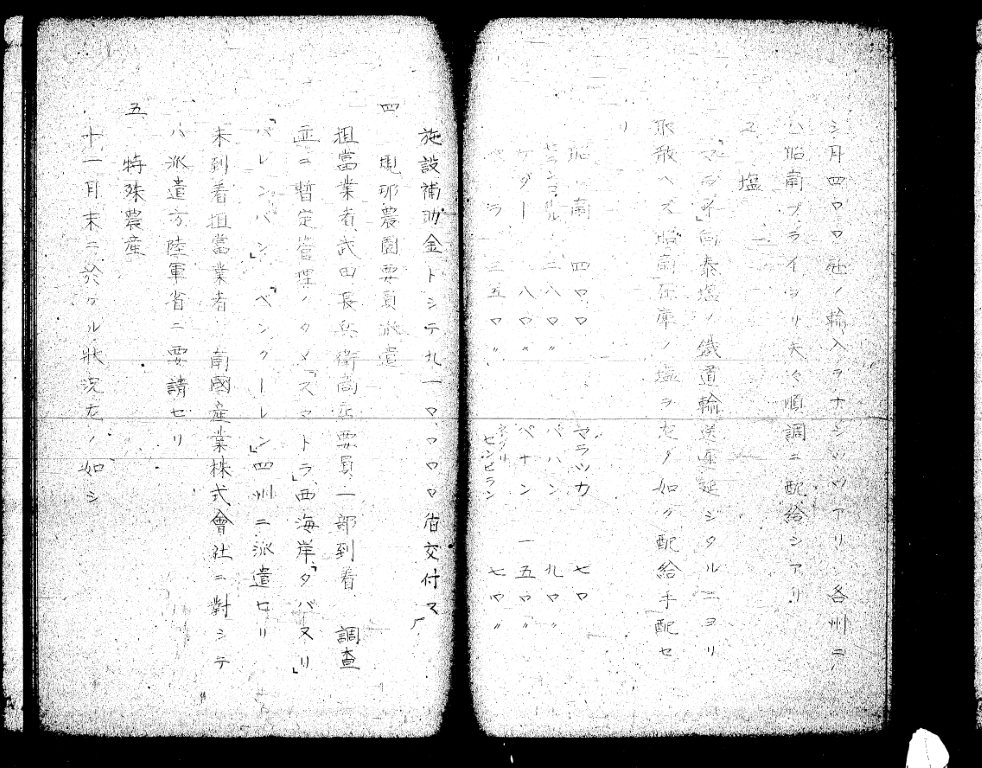 シ月四〇〇〇瓲ノ輸入ヲナシツツアリ 各州ニ
ハ昭南プライヨリ夫々順調ニ配給シアリ
2 塩
「マライ」向泰塩ノ鐵道輸送遅延シタルニヨリ
取敢ヘズ昭南在庫ノ塩ヲ左ノ如ク配給手配セ
リ
昭南 四〇〇 マラッカ 七〇
セランゴール 二八〇〃 パハン 九〇〃
ケダー 八〇〃 ペナン 一五〇〃
ペラ 三五〇〃 ネグリセンビラン 七〇〃
施設補助金トシテ九一〇、〇〇〇〇 交付ス
四 規那農園要員派遣
担當業者武田長兵衛商店要員一部到着 調査
並ニ暫定管理ノタメ「スマトラ」西海岸「タパヌリ」
「パレンバン」「ベンクーレン」四州ニ派遣セリ
未到着担當業者 南國産業株式會社ニ對シテ
ハ派遣方陸軍省ニ要請セリ
五 特殊農産
十一月末ニ於ケル状況左ノ如シ